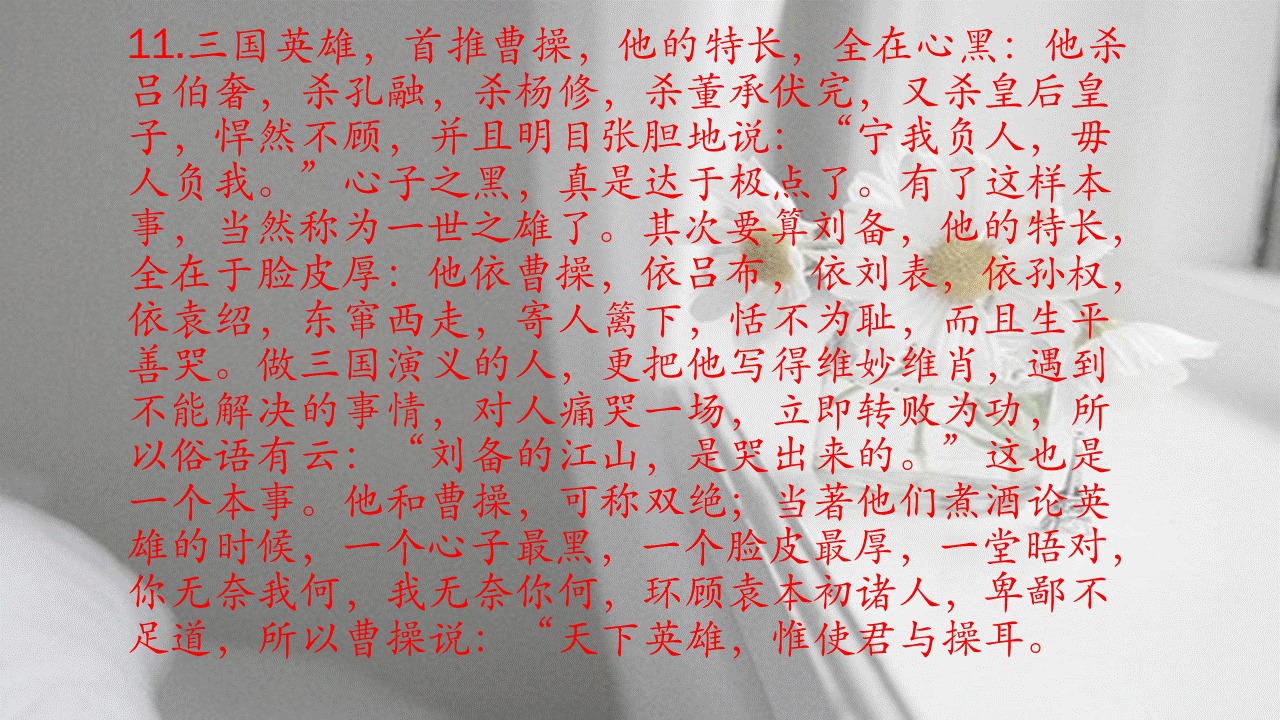 11.三国英雄，首推曹操，他的特长，全在心黑：他杀
吕伯奢，杀孔融，杀杨修，杀董承伏完，又杀皇后皇
子，悍然不顾，并且明目张胆地说：“宁我负人，毋
人负我。”心子之黑，真是达于极点了。有了这样本
事，当然称为一世之雄了。其次要算刘备，他的特长，
全在于脸皮厚：他依曹操，依吕布，依刘表，依孙权，
依袁绍，东窜西走，寄人篱下，恬不为耻，而且生平
善哭。做三国演义的人，更把他写得维妙维肖，遇到
不能解决的事情，对人痛哭一场，立即转败为功，所
以俗语有云：“刘备的江山，是哭出来的。”这也是
一个本事。他和曹操，可称双绝；当著他们煮酒论英
雄的时候，一个心子最黑，一个脸皮最厚，一堂晤对，
你无奈我何，我无奈你何，环顾袁本初诸人，卑鄙不
足道，所以曹操说：“天下英雄，惟使君与操耳。